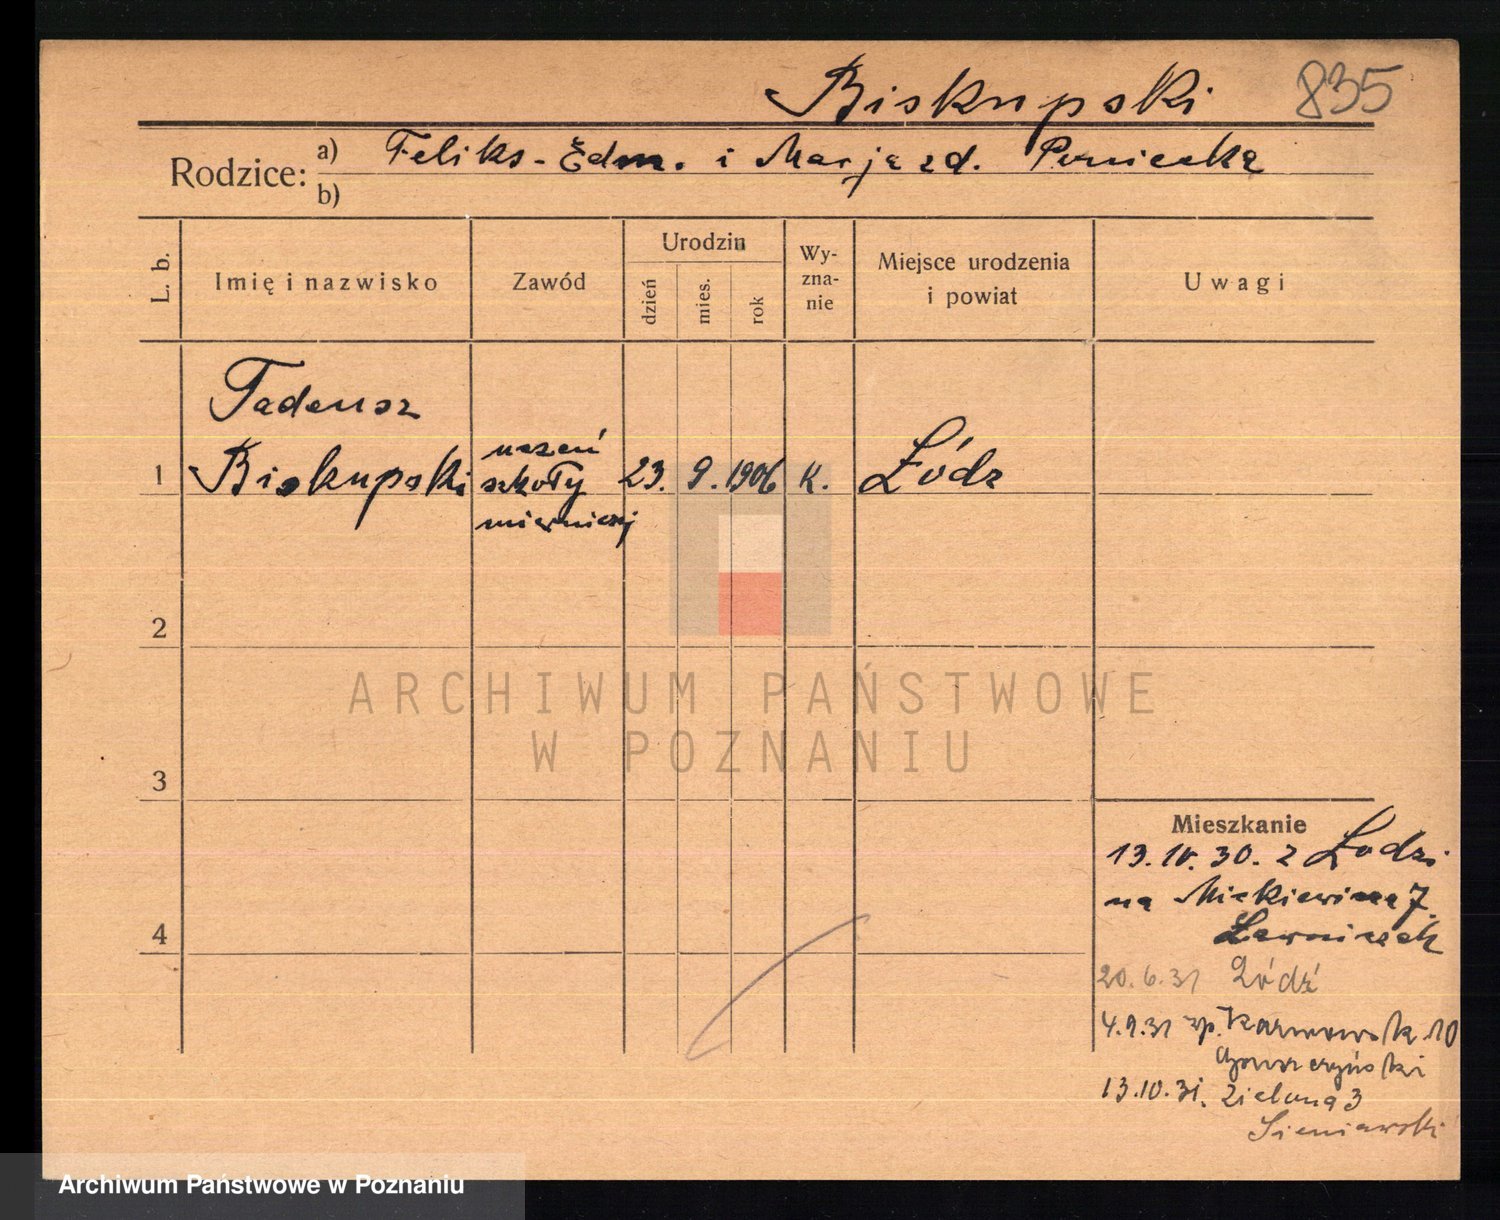 Biskupski 835
Rodzice: a) Feliks-Edm. i Marja zd. Poniecka
b)
L. b.
Imię i nazwisko
Zawód
Urodzin
dzień
mies.
rok
Wy-
zna-
nie
Miejsce urodzenia
i powiat
Uwagi
1
Tadeusz
Biskupski
uczeń
szkoły
mierniczej
23. 9. 1906 K. Łódz
2
3
4
Mieszkanie
13.10.30. z Łodzi
na Mickiewicza 7.
Ławniczak
20.6.31 Łódź
4.9.31 zp. 10
13.10.31. Zielona 3
Sieniawski
ARCHIWUM PAŃSTWOWE
W POZNANIU
Archiwum Państwowe w Poznaniu